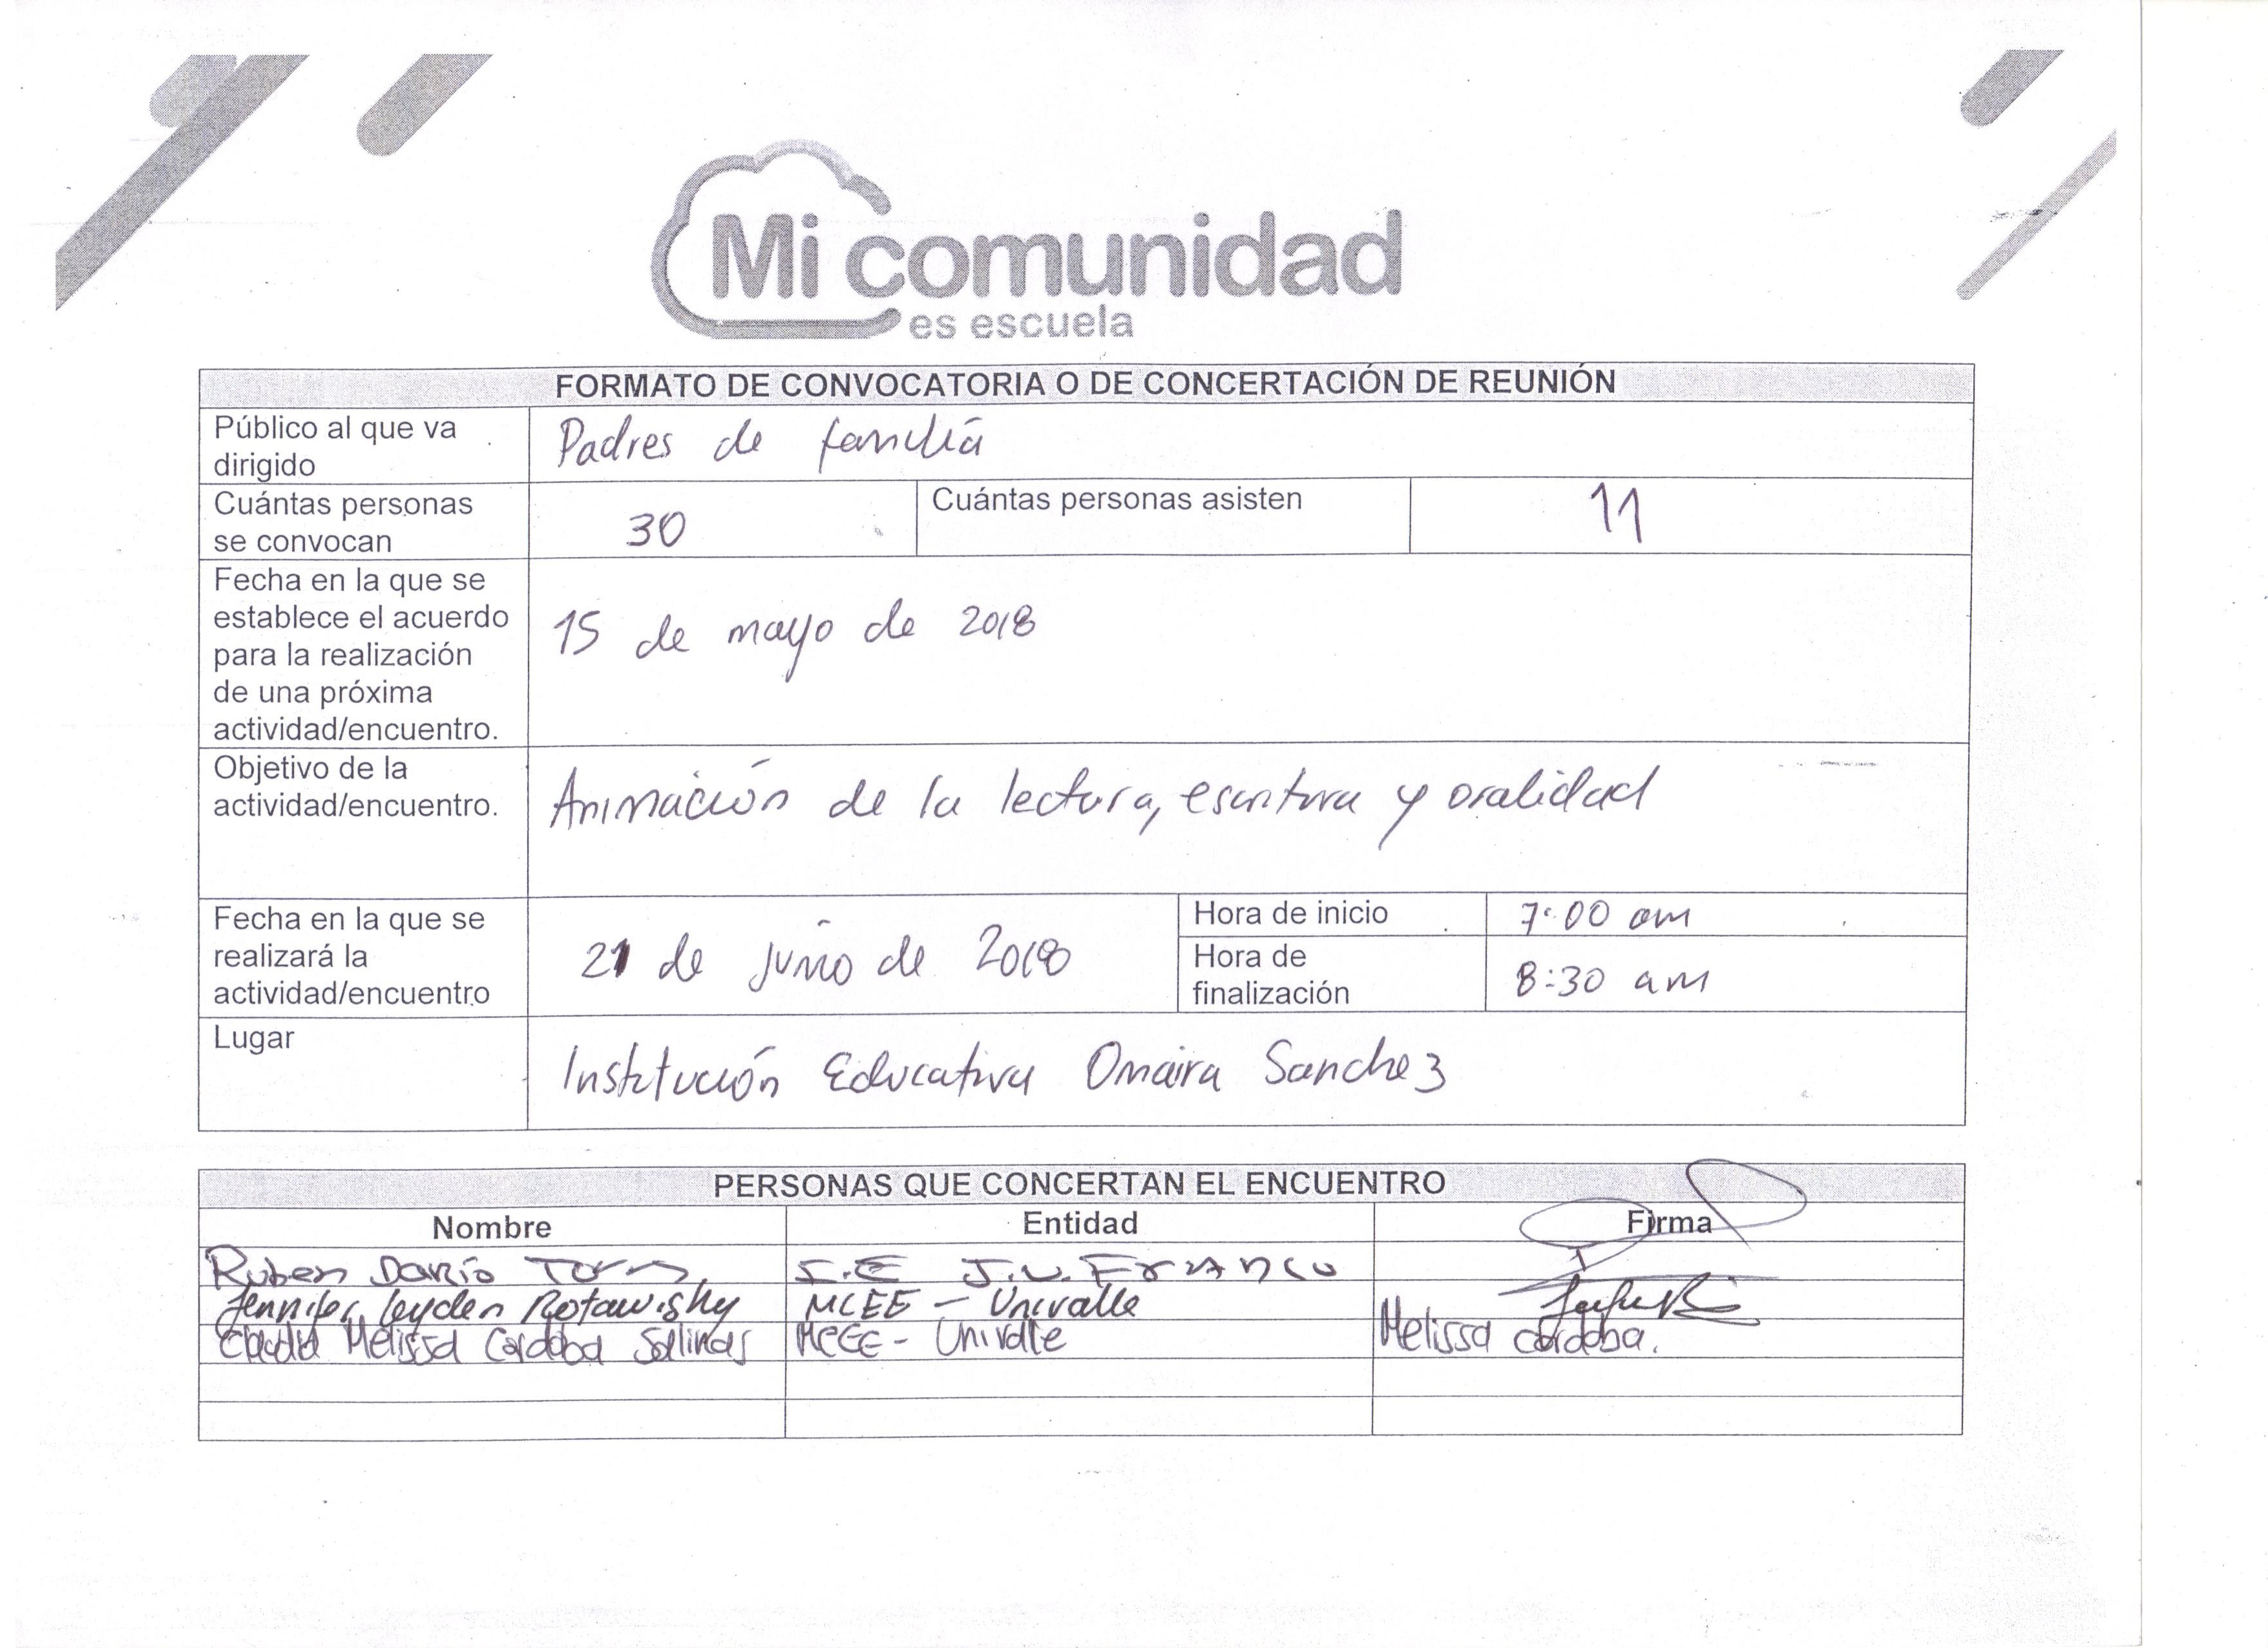 Mi comunidad
es escuela
FORMATO DE CONVOCATORIA O DE CONCERTACIÓN DE REUNIÓN
Público al que va
dirigido
Padres de familia
Cuántas personas
se convocan
30
Cuántas personas asisten
11
Fecha en la que se
establece el acuerdo
para la realización
de una próxima
actividad/encuentro.
15 de mayo de 2018
Objetivo de la
actividad/encuentro.
Animación de la lectura, escritura y oralidad
Fecha en la que se
realizará la
actividad/encuentro
21 de junio de 2018
Hora de inicio
7:00 am
Hora de
finalización
8:30 am
Lugar
Institución Educativa Omaira Sanchez
PERSONAS QUE CONCERTAN EL ENCUENTRO
Nombre Entidad Firma
Ruben Darío I.E J.V. Franco
Jennifer Leyden Rotawisky MCEE - Univalle
Claudia Melissa Cordoba Salinas MCEE - Univalle Melissa Cordoba.